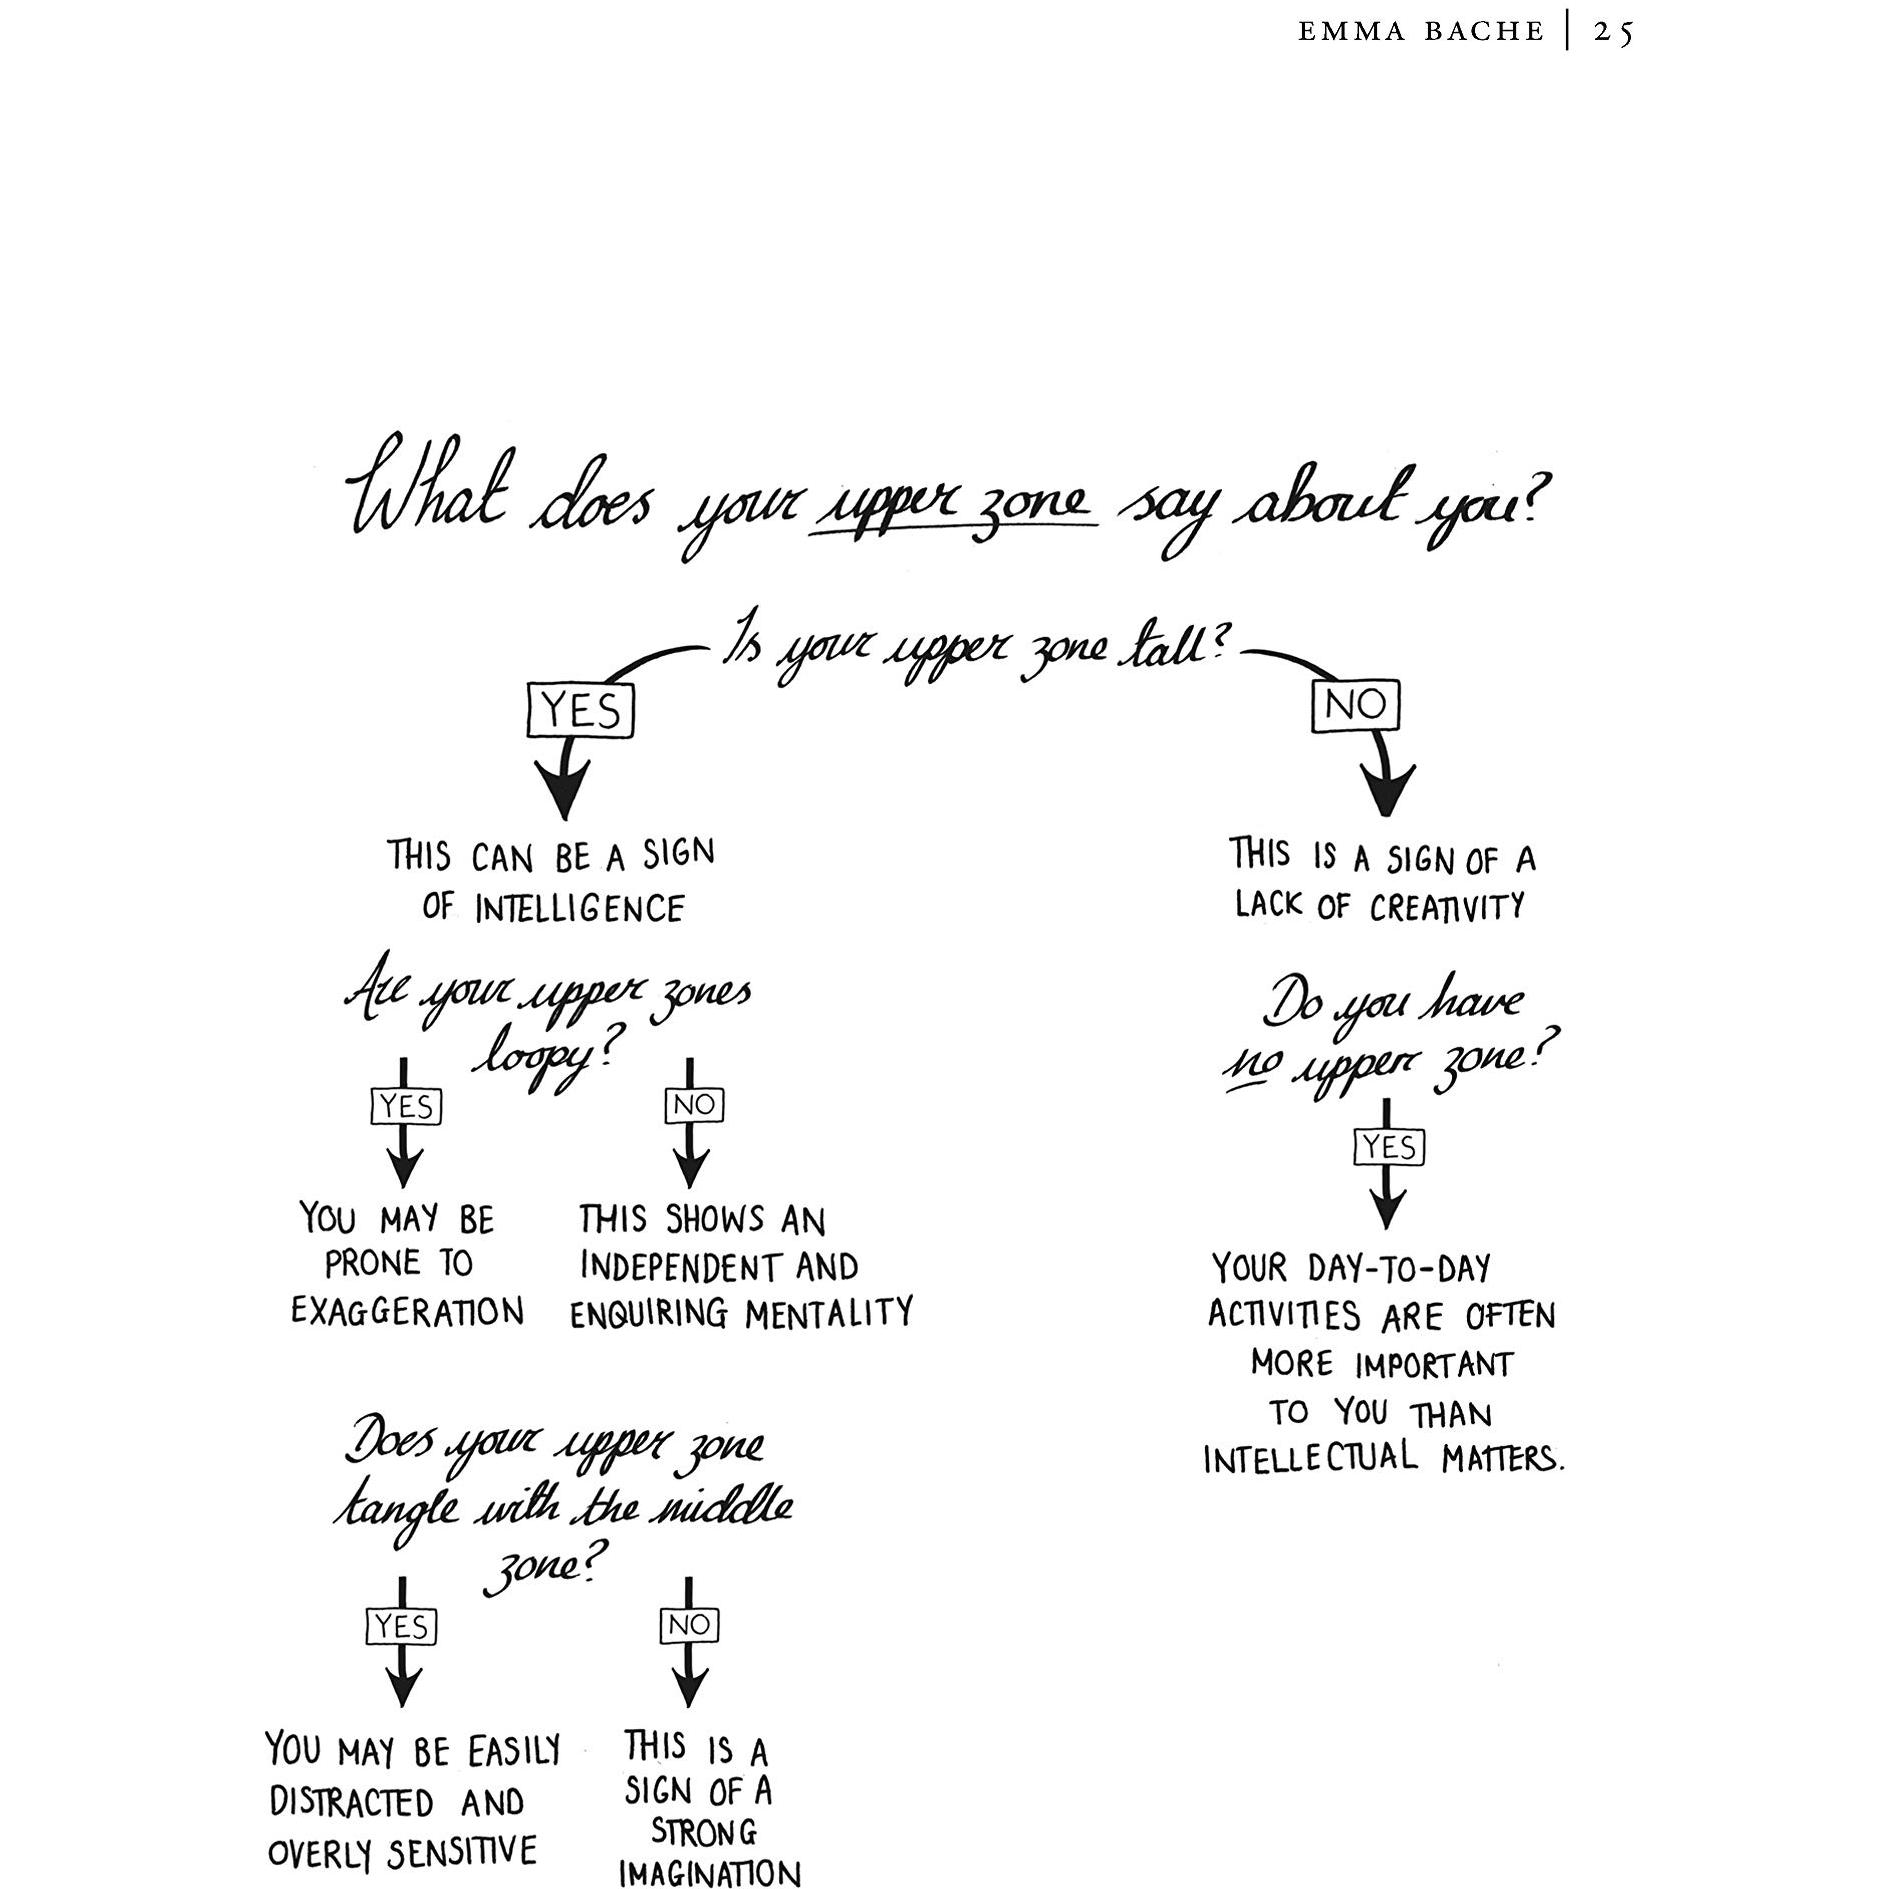 EMMA BACHE | 25
What does your upper zone say about you?
Is your upper zone tall?
YES
NO
THIS CAN BE A SIGN
OF INTELLIGENCE
THIS IS A SIGN OF A
LACK OF CREATIVITY
Are your upper zones
loopy?
YES
NO
YOU MAY BE
PRONE TO
EXAGGERATION
THIS SHOWS AN
INDEPENDENT AND
ENQUIRING MENTALITY
Does your upper zone
tangle with the middle
zone?
YES
NO
YOU MAY BE EASILY
DISTRACTED AND
OVERLY SENSITIVE
THIS IS A
SIGN OF A
STRONG
IMAGINATION
Do you have
no upper zone?
YES
YOUR DAY-TO-DAY
ACTIVITIES ARE OFTEN
MORE IMPORTANT
TO YOU THAN
INTELLECTUAL MATTERS.